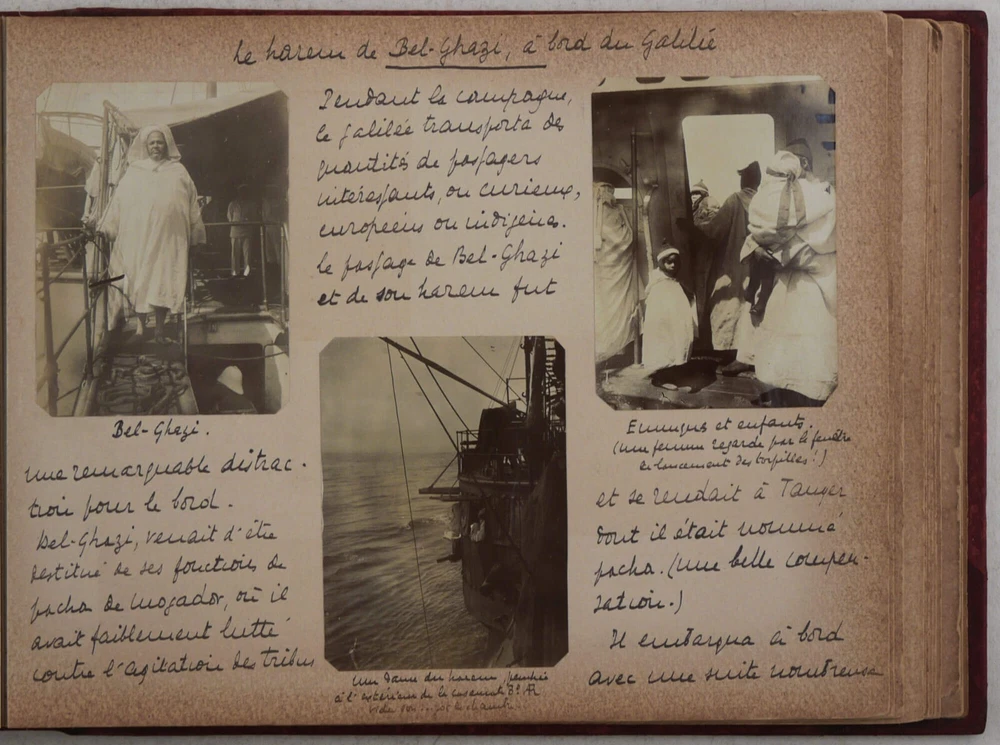 Le harem de Bel-Ghazi, à bord du Galilée
Pendant la campagne,
le Galilée transporta des
quantités de passagers
intéressants, ou curieux,
européens ou indigènes.
Le passage de Bel-Ghazi
et de son harem fut
Bel-Ghazi.
une remarquable distrac-
tion pour le bord.
Bel-Ghazi, venait d'être
destitué de ses fonctions de
pacha de Mogador, où il
avait faiblement lutté
contre l'agitation des tribus
Une dame du harem, penchée
à l'extérieur de la casemate
Eunuques et enfants.
(Une femme regarde par la fenêtre
de lancement des torpilles !)
et se rendait à Tanger
dont il était nommé
pacha. (Une belle compen-
sation.)
Il embarqua à bord
avec une suite nombreuse